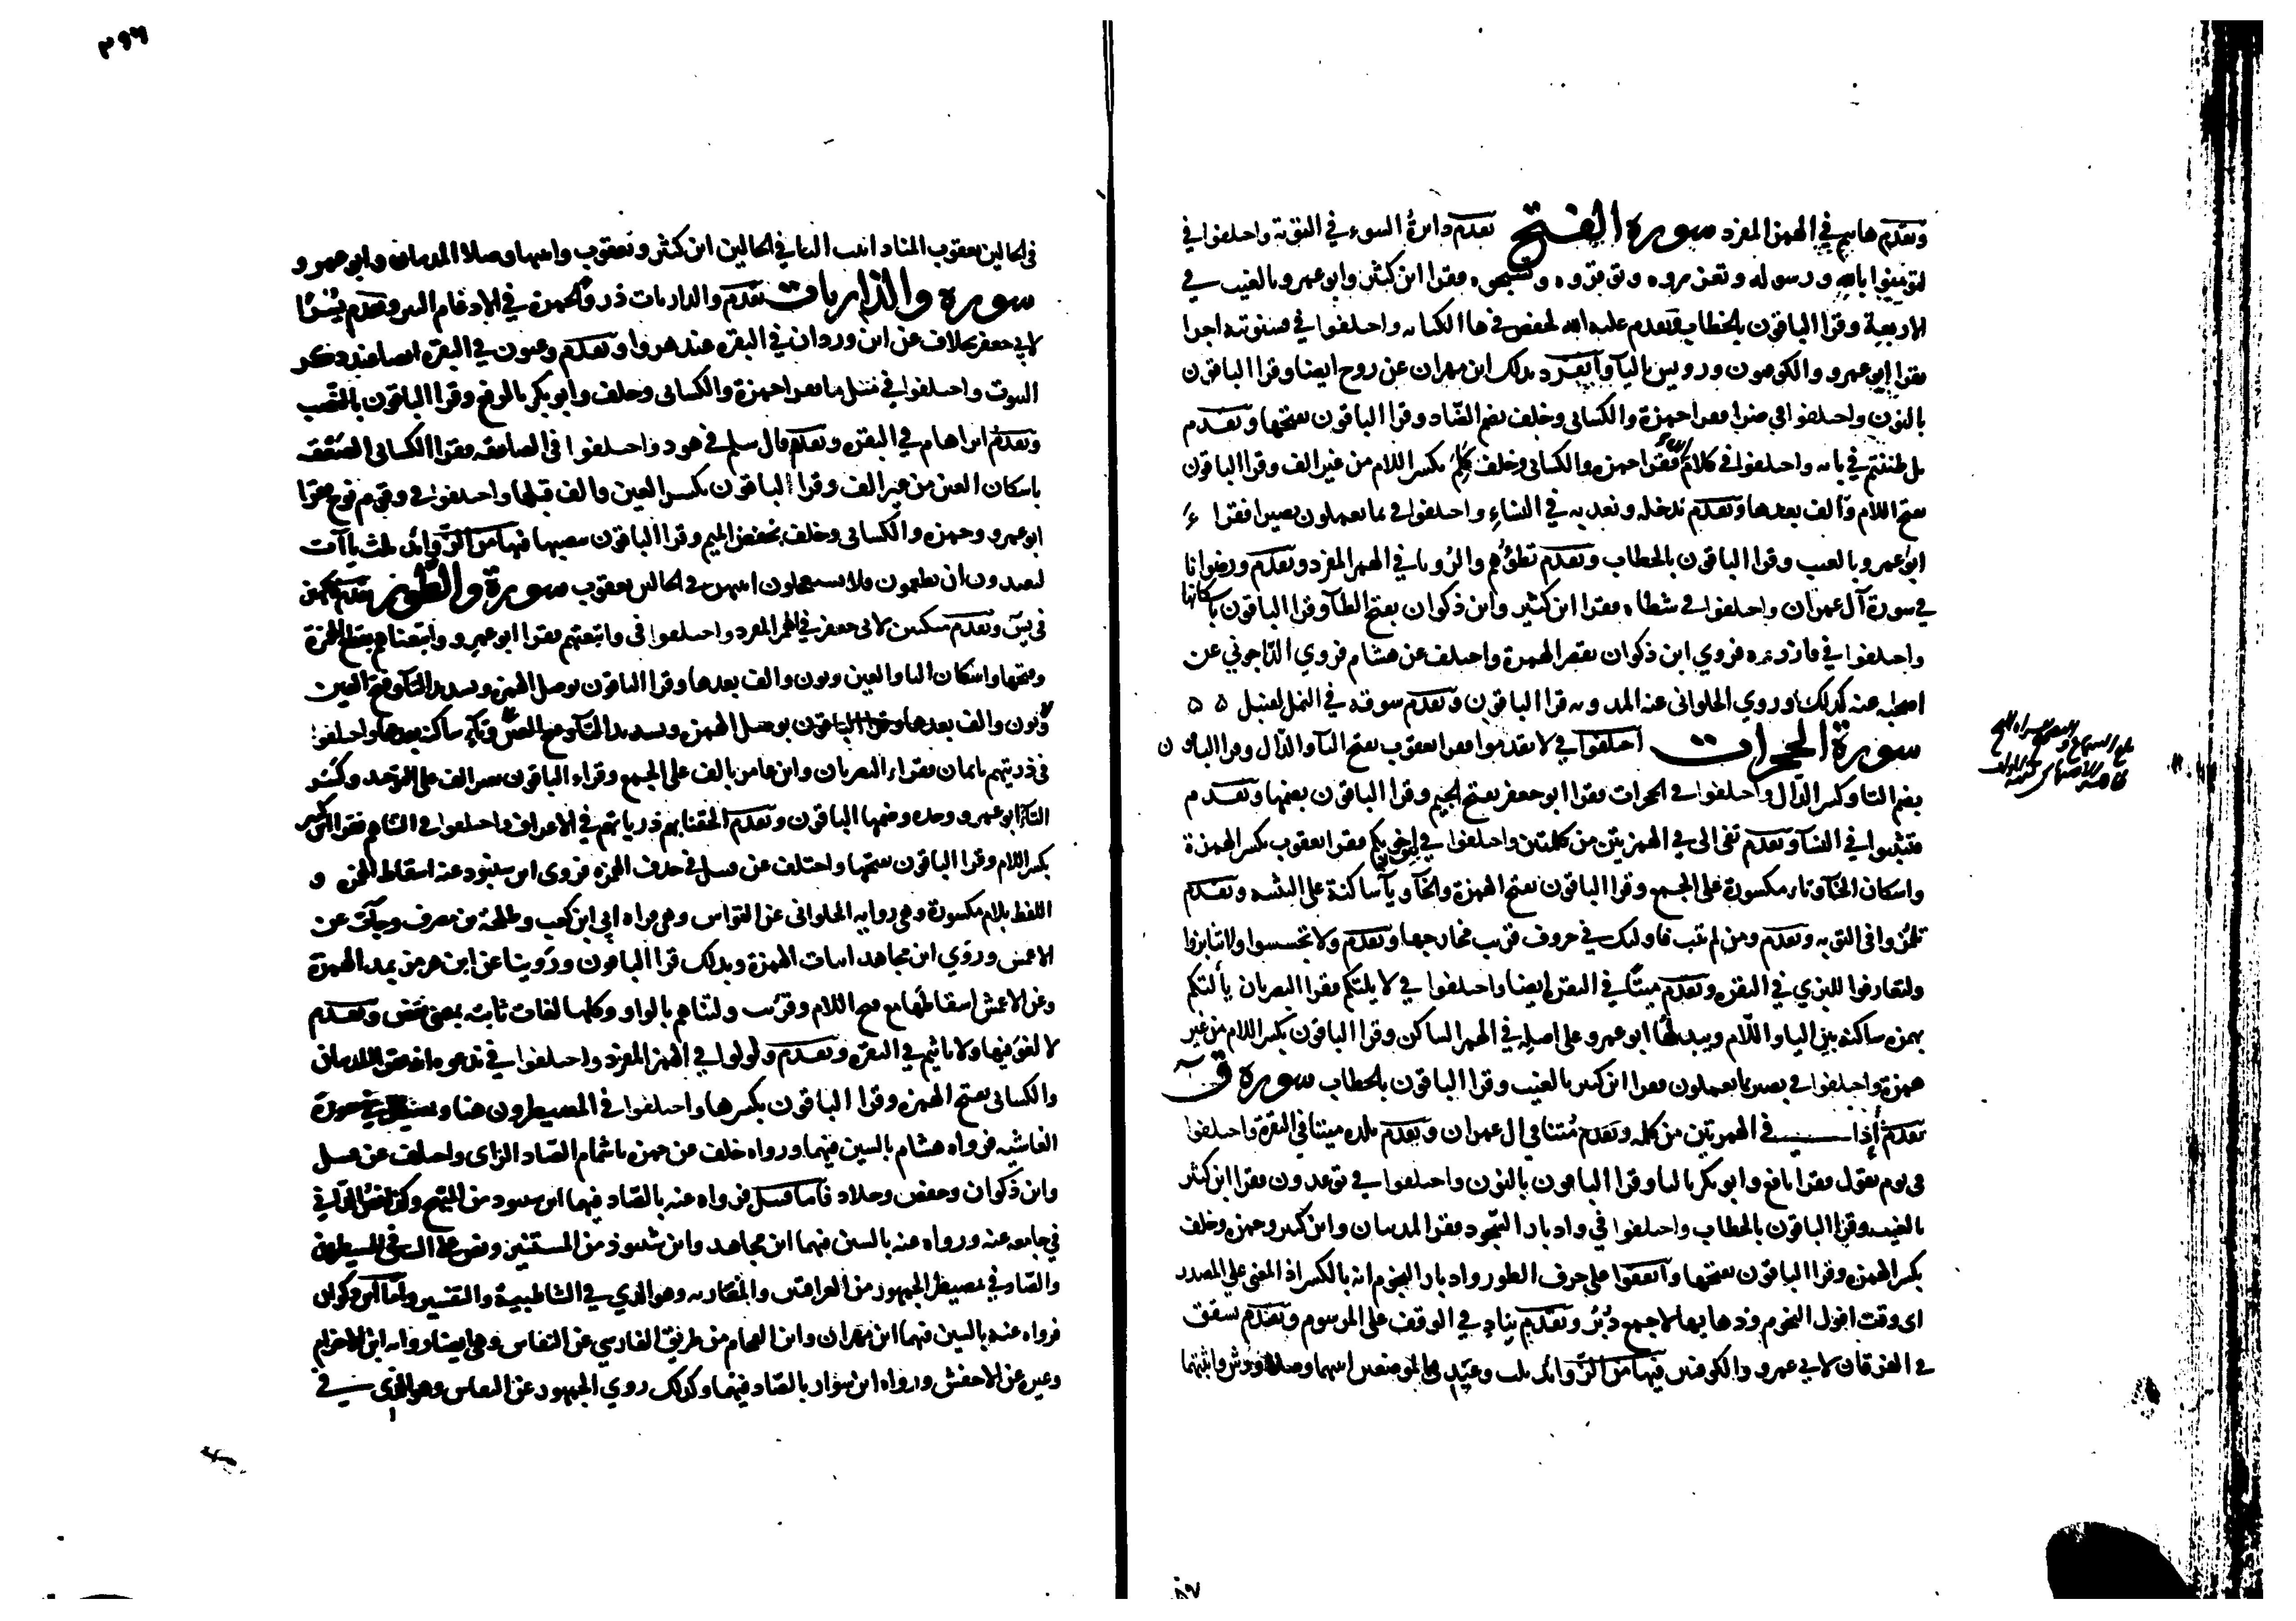 وتقدم هانتم في الهمز المفرد سورة الفتح تقدم دائرة السوء في التوبة واختلفوا في
لتؤمنوا بالله ورسوله وتعزروه وتوقروه وتسبحوه فقرا ابن كثير وابو عمرو بالغيب في
الاربعة وقرا الباقون بالخطاب وتقدم عليه الله لحفص في هاء الكناية واختلفوا في فسنوتيه اجرا
فقرا ابو عمرو والكوفيون ورويس باليآ وانفرد بذلك ابن مهران عن روح ايضا وقرا الباقون
بالنون واختلفوا في ضرا فقرا حمزة والكسائي وخلف بضم الضاد وقرا الباقون بفتحها وتقدم
بل ظننتم في بابه واختلفوا في كلام الله فقرا حمزه والكسائي وخلف كلم بكسر اللام من غير الف وقرا الباقون
بفتح اللام والف بعدها وتقدم ندخله ونعذبه في النساء واختلفوا في بما يعملون بصيرا فقرا
ابو عمرو بالغيب وقرا الباقون بالخطاب وتقدم تطؤهم والرويا في الهمز المفرد وتقدم ورضوانا
في سورة آل عمران واختلفوا في شطاه فقرا ابن كثير وابن ذكوان بفتح الطآ وقرا الباقون باسكانها
واختلفوا في فازره فروي ابن ذكوان بقصر الهمزة واختلف عن هشام فروي الداجوني عن
اصحابه عنه كذلك وروي الحلواني عنه المد وبه قرا الباقون وتقدم سوقه في النمل لقنبل ه ه
سورة الحجرات اختلفوا في لا تقدموا فقرا يعقوب بفتح التآ والدال وقرا الباقون
بضم التا وكسر الدال واختلفوا في الحجرات فقرا ابو جعفر بفتح الجيم وقرا الباقون بضمها وتقدم
فتثبتوا في النسآ وتقدم تفى الى في الهمزتين من كلمتين واختلفوا في اخويكم فقرا يعقوب بكسر الهمزة
واسكان الخآ وتاء مكسورة على الجمع وقرا الباقون بفتح الهمزة والخآ ويآ ساكنة على التثنيه وتقدم
تلمزوا في التوبه وتقدم ومن لم يتب فاولئك في حروف قربت مخارجها وتقدم ولا تجسسوا ولا تنابزوا
ولتعارفوا للبزي في البقره وتقدم ميتا في البقره ايضا واختلفوا في لا يلتكم فقرا البصريان يألتكم
بهمزه ساكنة بين الياء واللام ويبدلها ابو عمرو على اصله في الهمز الساكن وقرا الباقون بكسر اللام من غير
همزة واختلفوا في بصير بما يعملون فقرا ابن كثير بالغيب وقرا الباقون بالخطاب سورة ق
تقدم أإذا في الهمزتين من كلمه وتقدم متنا في ال عمران وتقدم بلدة ميتا في البقرة واختلفوا
في يوم يقول فقرا نافع وابو بكر باليا وقرا الباقون بالنون واختلفوا في توعدون فقرا ابن كثير
بالغيب وقرا الباقون بالخطاب واختلفوا في وادبار السجود فقرا المدنيان وابن كثير وحمزه وخلف
بكسر الهمزه وقرا الباقون بفتحها واتفقوا على حرف الطور وادبار النجوم انه بالكسر اذ المعنى على المصدر
اي وقت افول النجوم وذهابها لا جمع دبر وتقدم يناد في الوقف على المرسوم وتقدم تشقق
في الفرقان لابي عمرو والكوفيين فيها من الزوائد ثلث وعيد في الموضعين اثبتهما وصلا ورش واثبتهما
في الحالين يعقوب المناد اثبت اليا في الحالين ابن كثير ويعقوب واثبتها وصلا المدنيان وابو عمرو و
سورة والذاريات تقدم والذاريات ذروا لحمزة في الادغام الكبير وتقدم يسرا
لابي جعفر بخلاف عن ابن وردان في البقره عند هزوا وتقدم وعيون في البقره ايضا عند ذكر
البيوت واختلفوا في مثل ما فقرا حمزة والكسائي وخلف وابو بكر بالرفع وقرا الباقون بالنصب
وتقدم ابراهام في البقره وتقدم قال سلم في هود واختلفوا في الصاعقه فقرا الكسائي الصعقه
باسكان العين من غير الف وقرا الباقون بكسر العين والف قبلها واختلفوا في وقوم نوح فقرا
ابو عمرو وحمزه والكسائي وخلف بخفض الميم وقرا الباقون بنصبها فيها من الزوائد ثلث ياآت
ليعبدون ان يطعمون فلا يستعجلون اثبتهن في الحالين يعقوب سورة والطور تقدم فاكهين
في يس وتقدم متكئين لابي جعفر في الهمز المفرد واختلفوا في واتبعتهم فقرا ابو عمرو واتبعناهم بقطع الهمزة
وفتحها واسكان التا والعين ونون والف بعدها وقرا الباقون بوصل الهمز وتشديد التآ وفتح العين
ونون والف بعدها وقرا الباقون بوصل الهمز وتشديد التآ وفتح العين وتآء ساكنة بعدها واختلفوا
في ذريتهم بايمان فقراء البصريان وابن عامر بالف على الجمع وقراء الباقون بغير الف على التوحيد وكسر
التآء ابو عمرو وحده وضمها الباقون وتقدم الحقنا بهم ذرياتهم في الاعراف واختلفوا في التناهم فقرا ابن كثير
بكسر اللام وقرا الباقون بفتحها واختلف عن قنبل في حذف الهمزه فروى ابن شنبوذ عنه اسقاط الهمزه و
اللفظ بلام مكسورة وهي رواية الحلواني عن القواس وهي قراه ابي ابن كعب وطلحة بن مصرف وجآت عن
الاعمش وروي ابن مجاهد اثبات الهمزة وبذلك قرا الباقون وروينا عن ابن هرمز بمد الهمزة
وعن الاعمش اسقاطها مع فتح اللام وقرئت ولتناهم بالواو وكلها لغات ثابتة بمعنى نقص وتقدم
لا لغو فيها ولا تاثيم في البقره وتقدم ولولوا في الهمز المفرد واختلفوا في ندعوه انه فقرا المدنيان
والكسائي بفتح الهمزه وقرا الباقون بكسرها واختلفوا في المصيطرون هنا وبمصيطر في سورة
الغاشيه فرواه هشام بالسين فيهما ورواه خلف عن حمزه باشمام الصاد الزاى واختلف عن قنبل
وابن ذكوان وحفص وخلاد فاما قنبل فرواه عنه بالصاد فيهما ابن شنبوذ من المبهج وكذا نص الداني
في جامعه عنه ورواه عنه بالسين فيهما ابن مجاهد وابن شنبوذ من المستنير ونص على السين في المسيطرون
والصاد في بمصيطر الجمهور من العراقيين والمغاربه وهو الذي في الشاطبية والتيسير واما ابن ذكوان
فرواه عنه بالسين فيهما ابن مهران وابن الفحام من طريق الفارسي عن النقاش وهي ايضا رواية ابن الاخرم
وغيره عن الاخفش ورواه ابن سوار بالصاد فيهما وكذلك روي الجمهور عن النقاش وهو الذي في